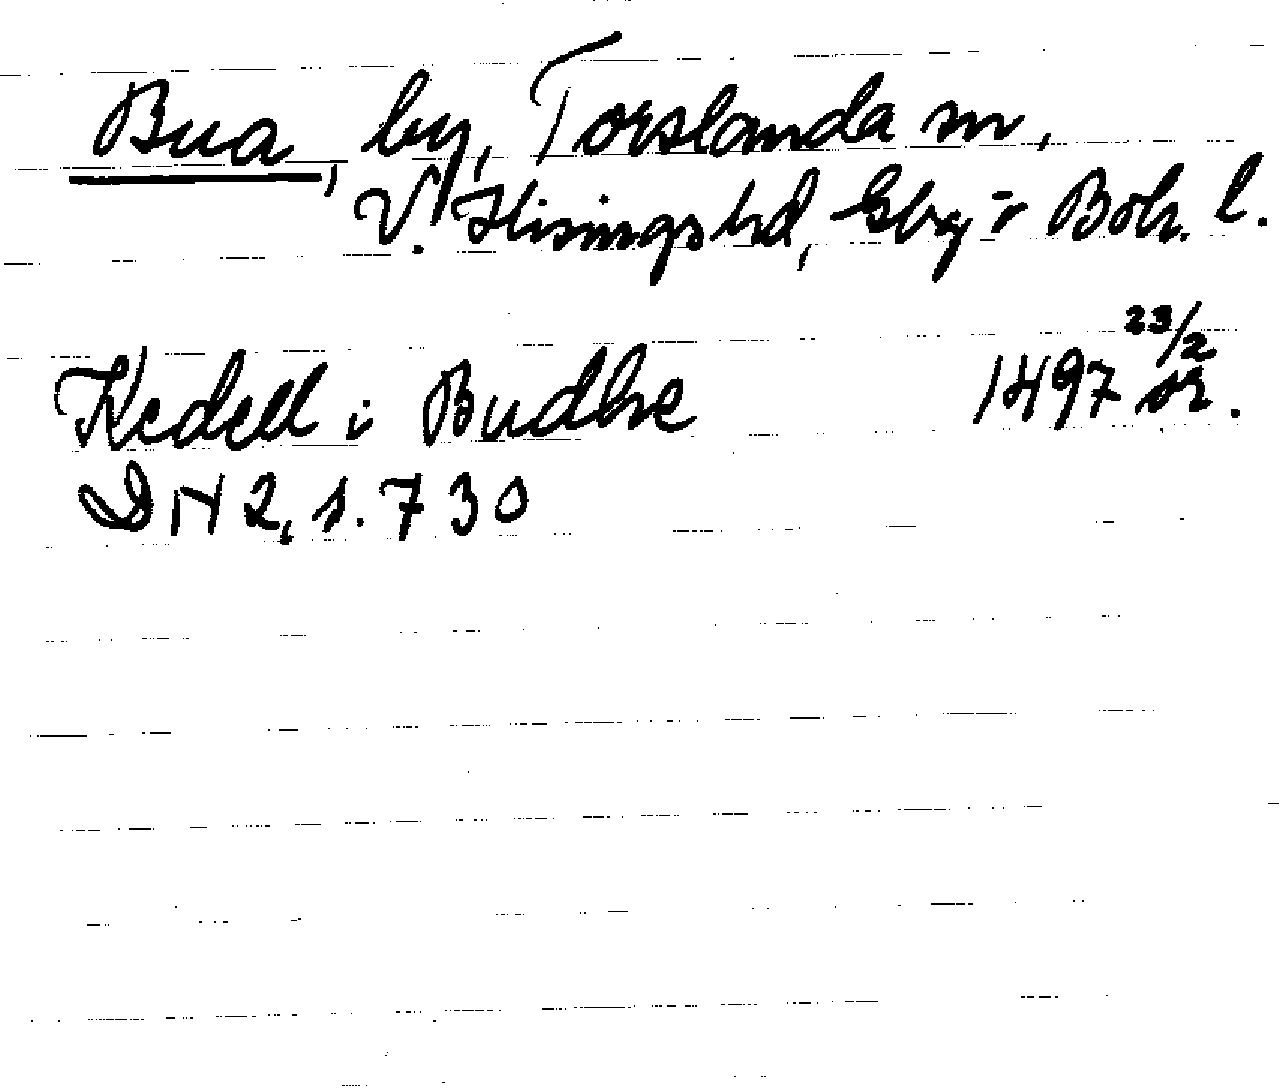 Bua, by, Torslanda sn,
V. Hisings hd, Gbg o Boh. l.
Kedell i Budhe 1497 23/2 sr.
DN 2, s. 730